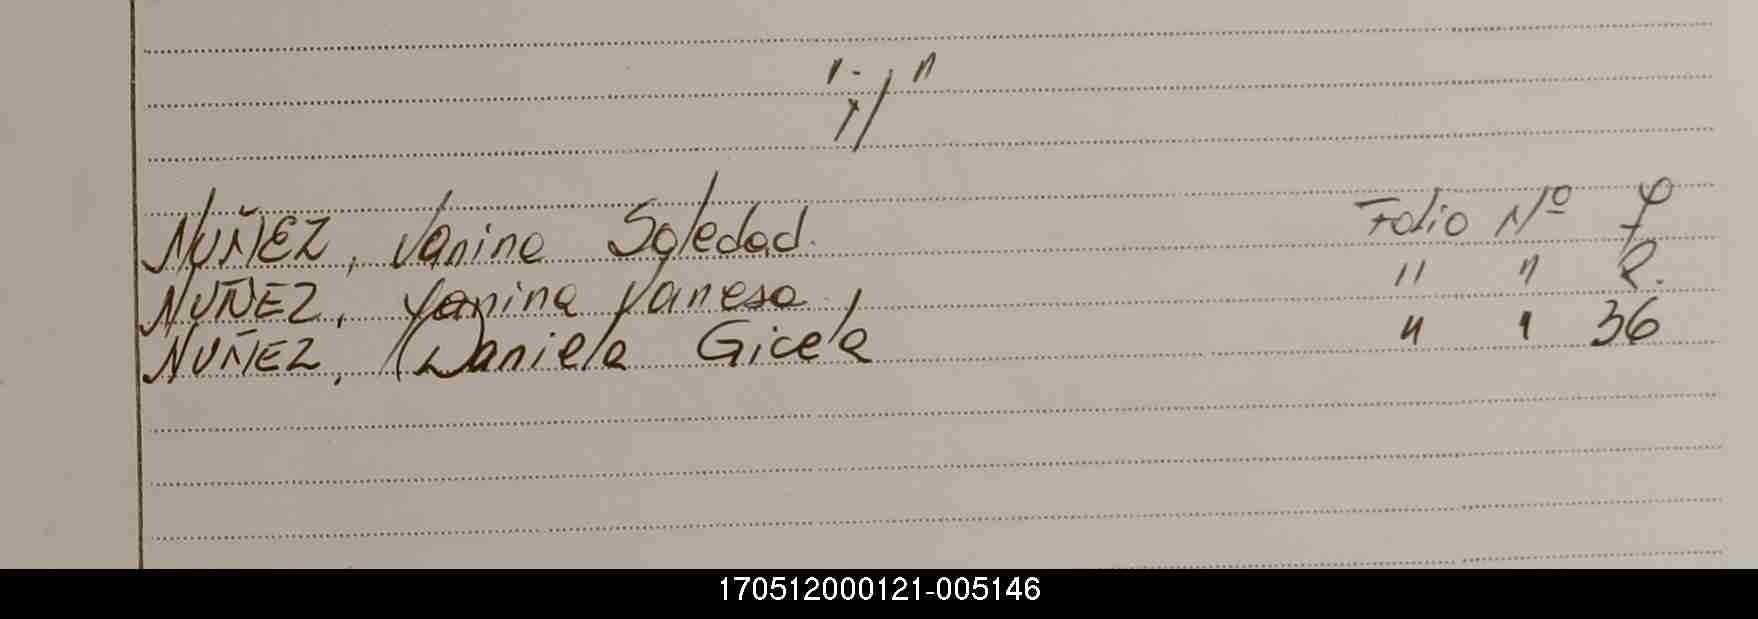 "Ñ"
NUÑEZ, Vanina Soledad. Folio Nº
NUÑEZ, Yanina Vanesa. " "
NUÑEZ, Daniela Gicela " " 36
170512000121-005146